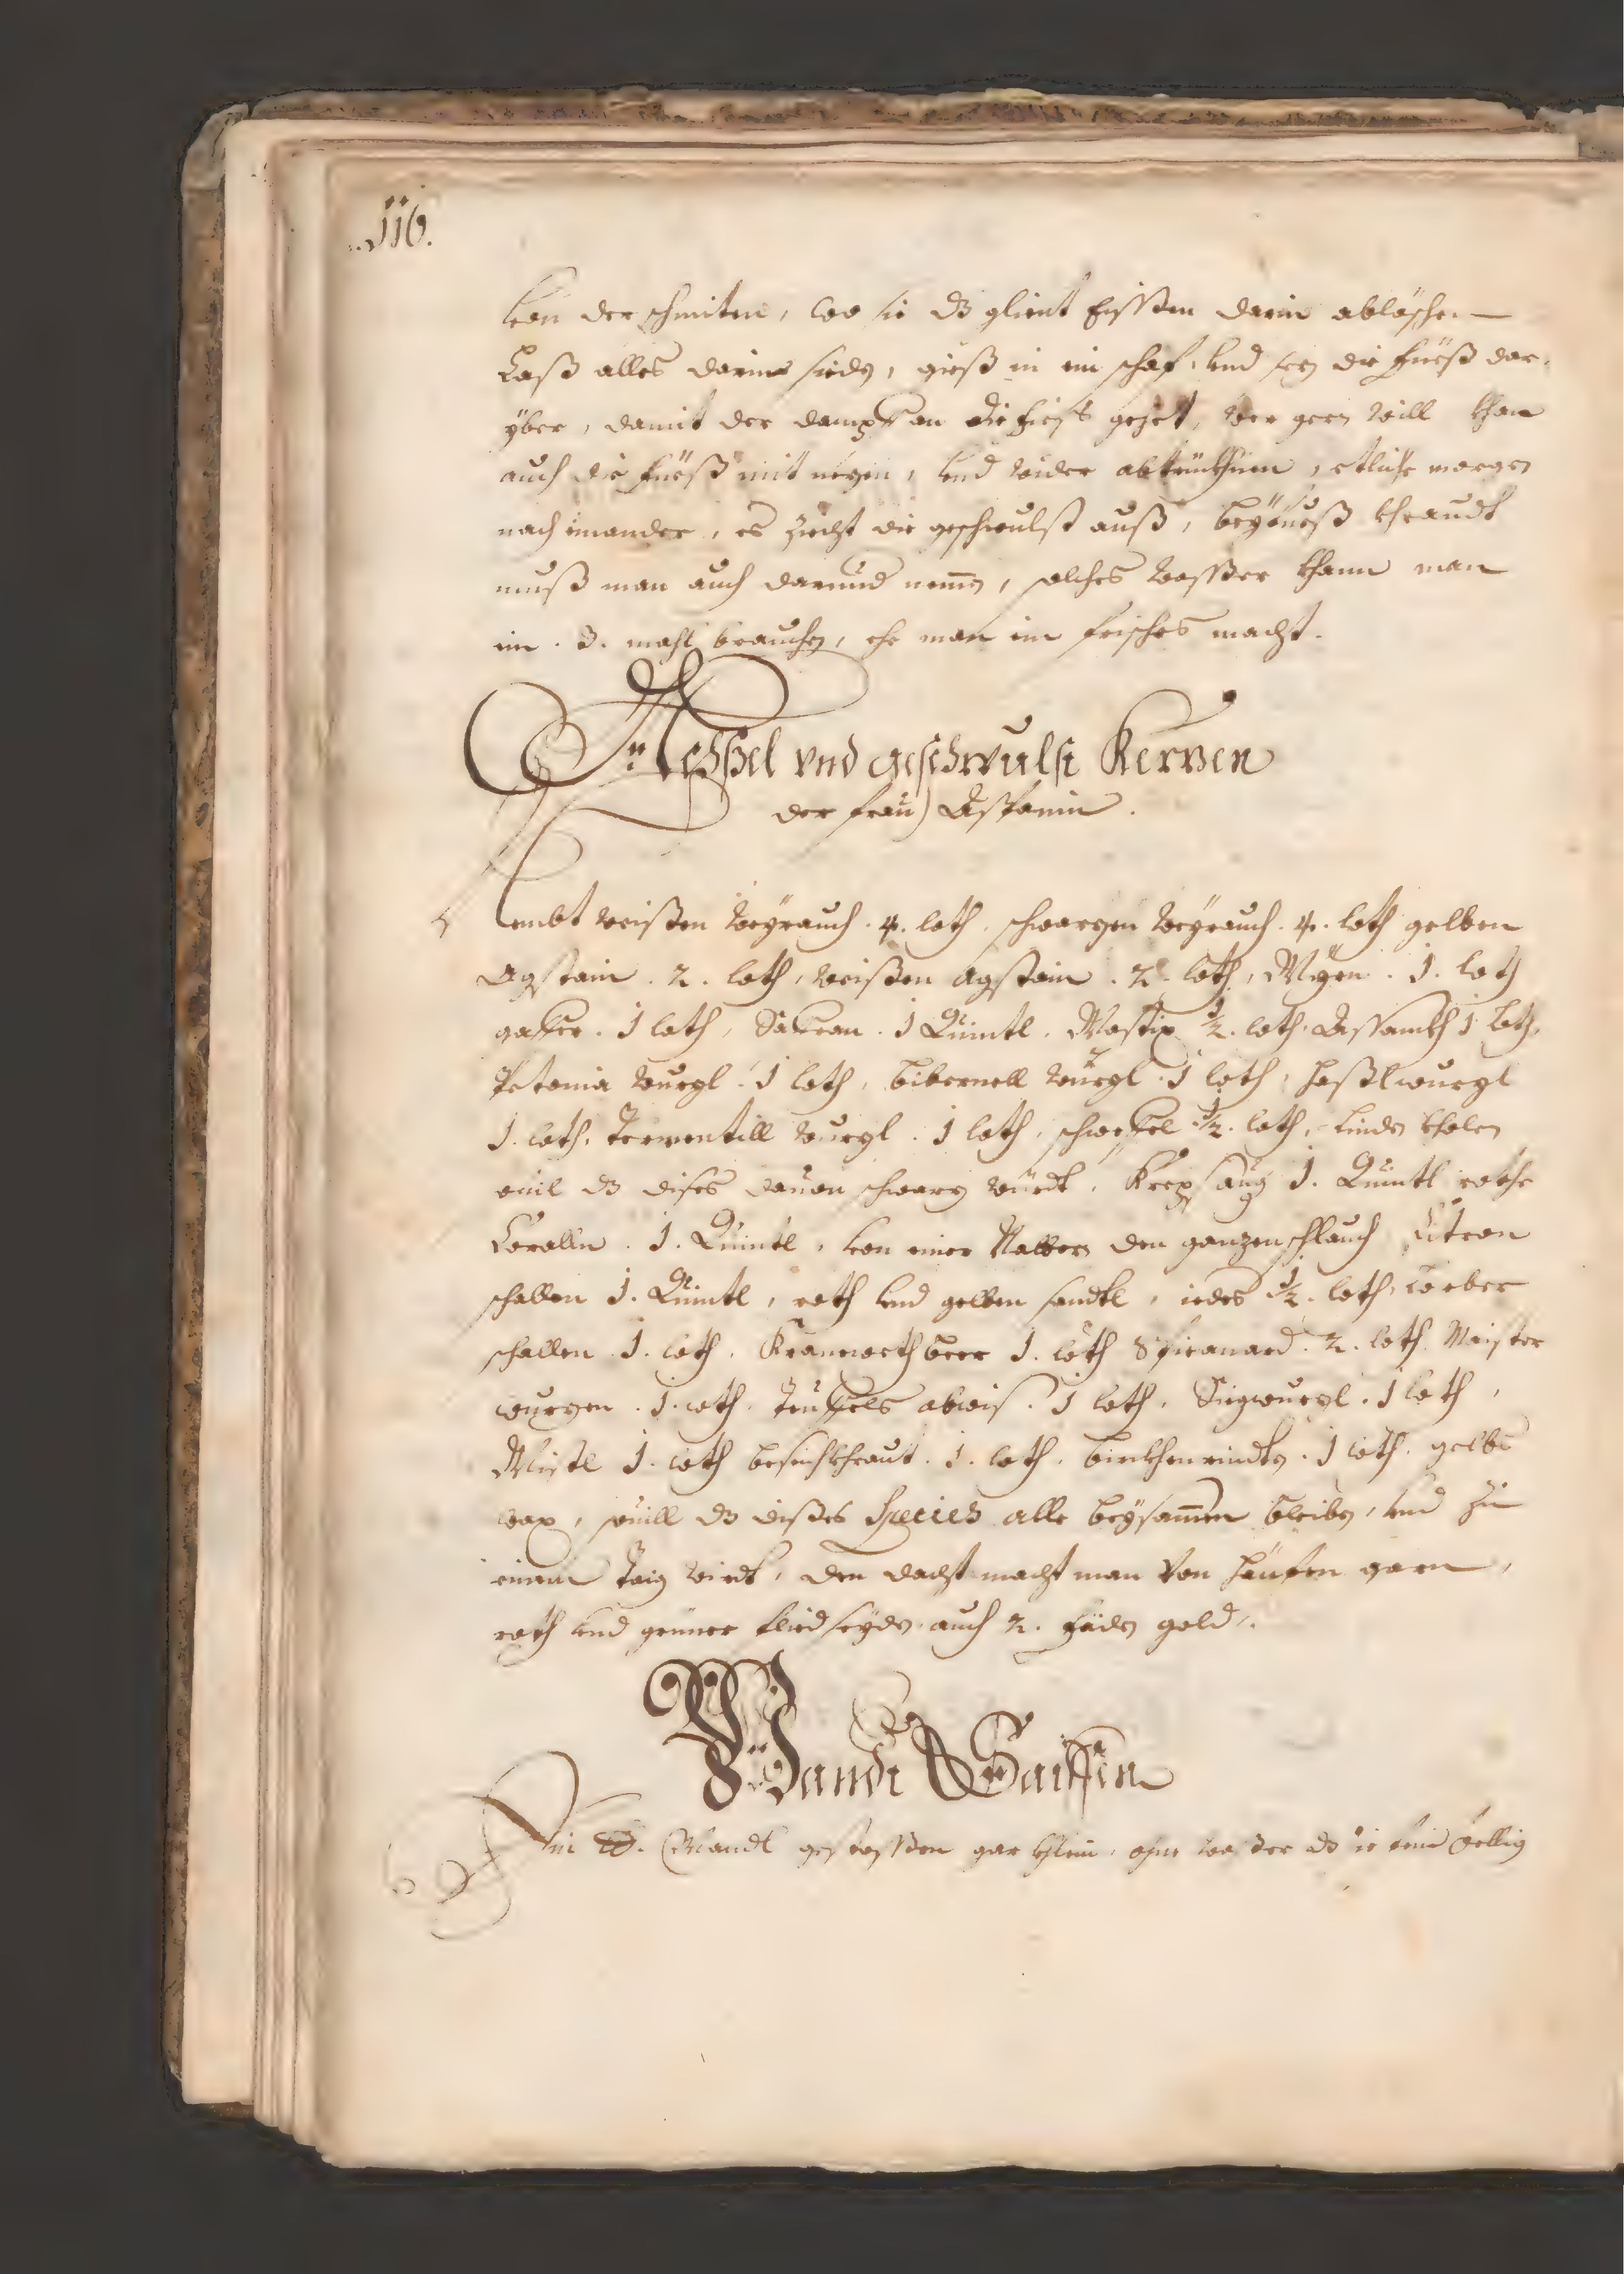 116.
von der schmiten, wo sie dz glient Eissen darin ablöschen
Laß alles darine sieden, gieß in ein schaf, vnd setz die füeß dar,
yber, damit der dampf an die fieß gehet, wer gern will khan
auch die füeß mit nezen, vnd wider abtrückhnen, etliche morgen
nach einander, es ziecht die geschwulst auß, beyfueß khraudt
muß man auch darund nemen, solches wasser khann man
ein . 3. mahl brauchen, ehe man ein frisches macht.
vnd geschwulst Kerzen
der frau
Nembt weissen weyrauch . 4. loth. schwarzen weyrauch . 4. loth gelben
Agstain . 2. loth, weissen agstain . 2. loth, . 1. loth
gaffer . 1 loth, Saffran . 1 Quintl. Mastix ½. loth. 1. loth,
Petonia wurzl . 1 loth, bibernell wurzl . 1 loth, haslwurzl
1. loth, Tormentill wurzl . 1 loth, schweffel ½. loth, Linden kholen
vil dz dises dauon schwarz würdt, Krepsaug 1. Quintl rothe
Corallen . 1. Quintl, von einer Natter den ganzen schlauch Citron
schallen 1. Quintl, roth vnd gelben sandtl, iedes ½. loth, Lorber
schallen . 1. loth, Kranewethbeer 1. loth Spicanard . 2. loth. Maister
wurzen . 1. loth. Teuffels abwis . 1 loth, Sigwurzl . 1 loth,
Mistl 1. loth khraut . 1. loth, birckhenrindten . 1 loth. gelbs
wax, souill dz dises Species alle beysamen bleiben, vnd zu
einem Taig wirdt, den dacht macht man von häuffen garn,
roth vnd griener seyden auch 2. fäden gold.
Mandl Saiffen
Ein ℔. Mandl gestossen gar khlein, ohne wasser dz sie fein öellig